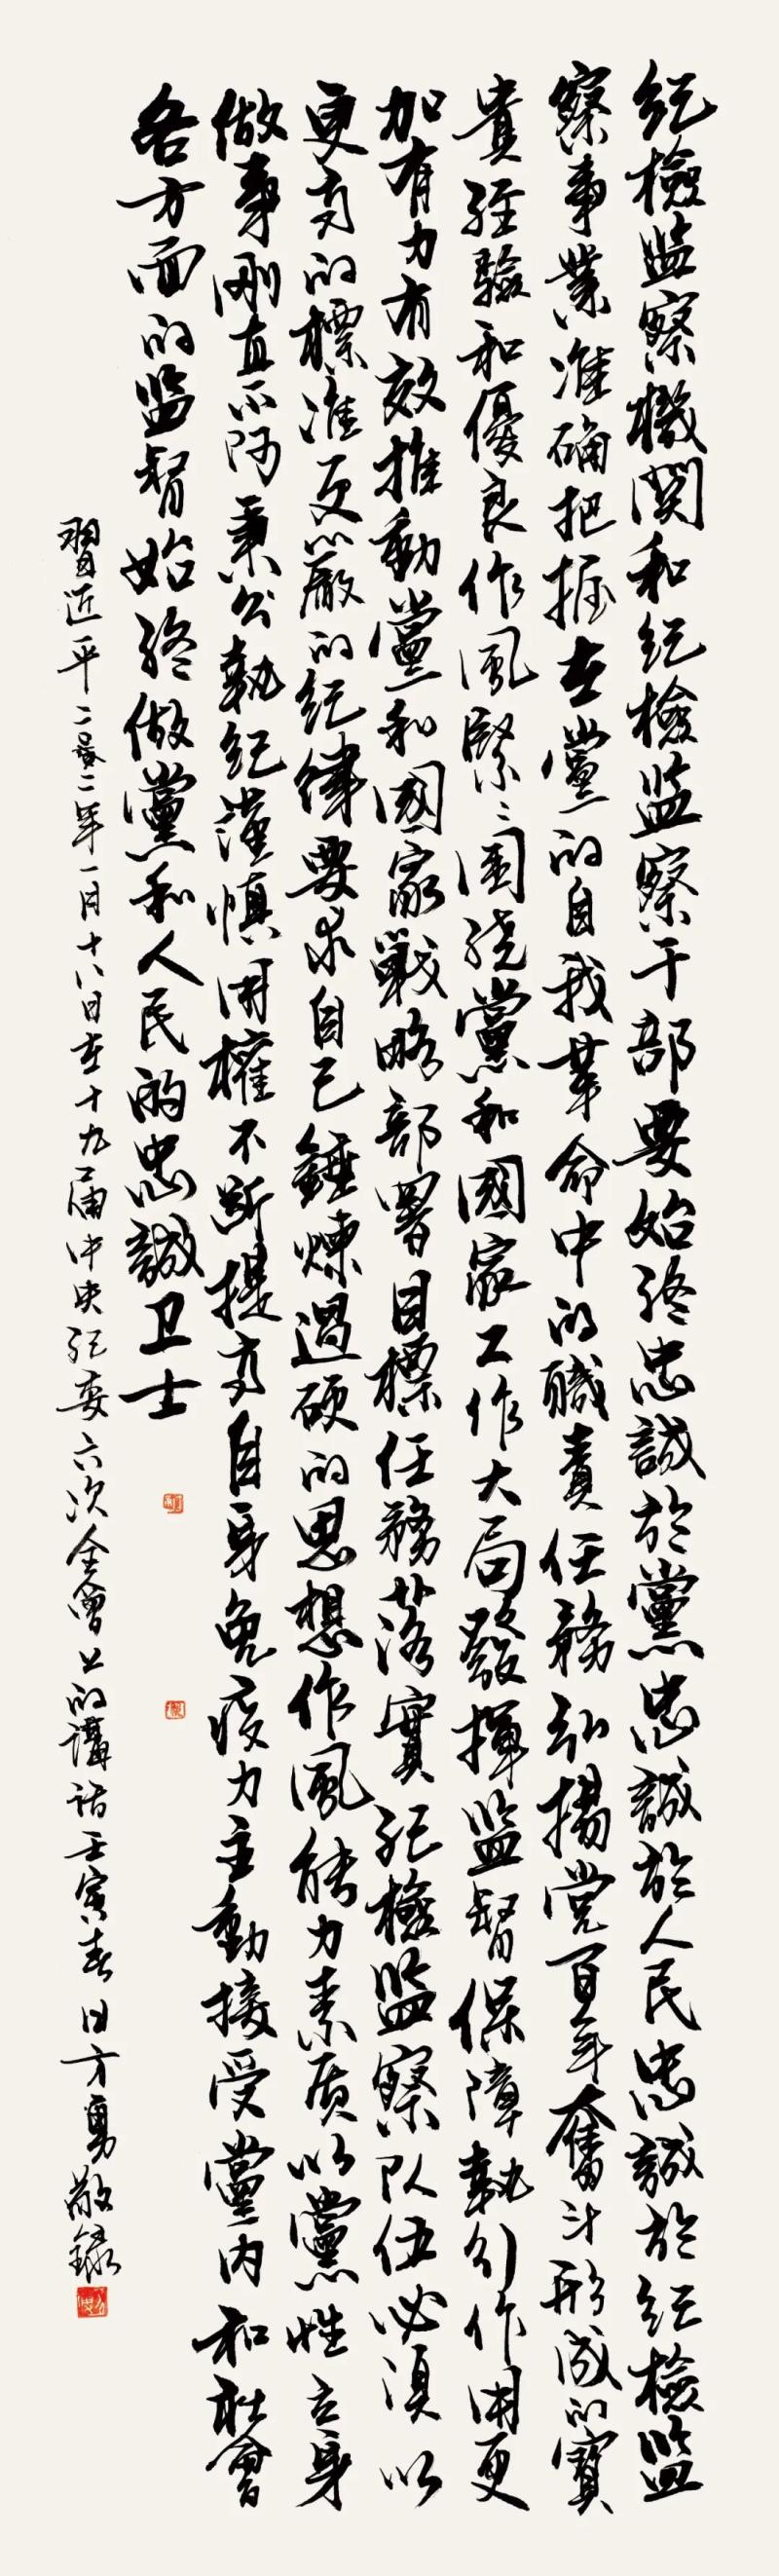 紀檢监察機関和紀檢监察干部要始终忠誠於黨忠誠於人民忠誠於紀檢监
察事業准确把握在黨的自我革命中的職責任務弘揚党百年奮斗形成的寶
貴經驗和優良作風緊緊圍繞黨和國家工作大局發揮监督保障執行作用更
加有力有效推動黨和國家戰略部署目標任務落實紀檢监察队伍必須以
更高的標准更嚴的紀律要求自己錘煉過硬的思想作風能力素质以黨性立身
做事刚直不阿秉公執纪謹慎用權不断提高自身免疫力主動接受黨内和社會
各方面的监督始终做黨和人民的忠誠卫士
習近平二〇二二年一月十八日在十九届中央紀委六次全會上的講话壬寅春日方勇敬録